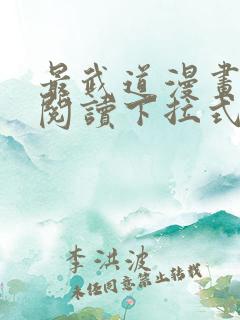 最武道漫畫
閱讀下拉式
李洪波
未经同意禁止转载